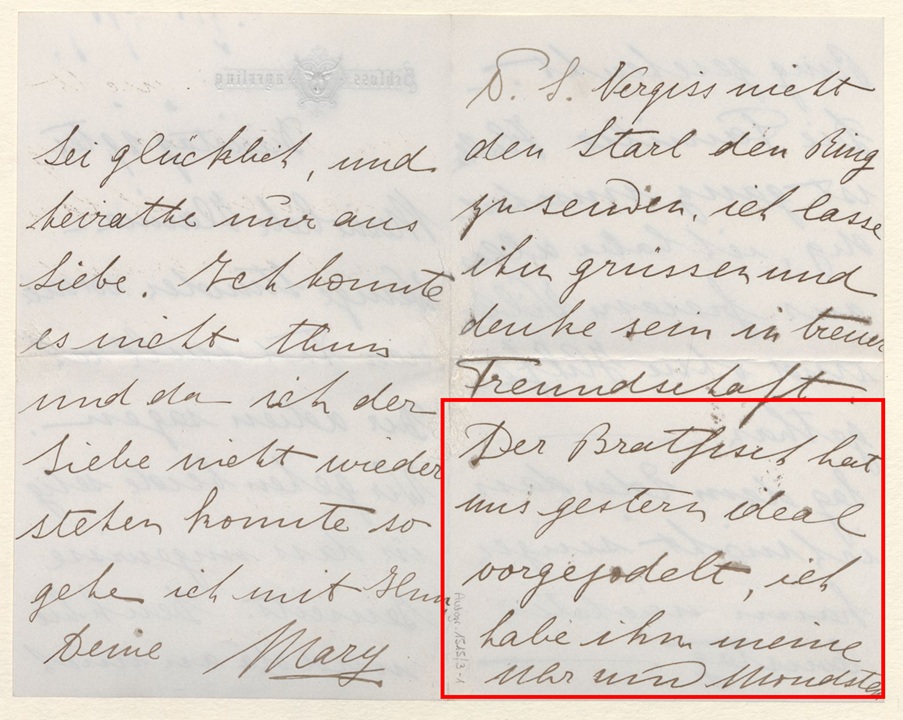 Sei glücklich, und
heirathe nur aus
Liebe. Ich konnte
es nicht thun
und da ich der
Liebe nicht wieder
stehen konnte so
gehe ich mit Ihm,
Deine Mary
P. S. Vergiss nicht
den Starl den Ring
zu senden, ich lasse
ihn grüssen und
denke sein in treuer
Freundschaft.
Der Bratfisch hat
uns gestern ideal
vorgejodelt, ich
habe ihm meine
Uhr und Mondstein
Schloss Mayerling
Autogr. 1515/3-1